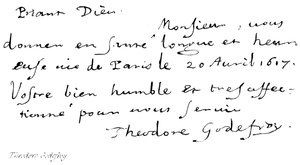 Priant Dieu.
Monsieur, vous
donner en santé longue et heur
euse vie de Paris le 20 Auril 1617.
Vostre bien humble et tresaffec-
tionné pour vous seruir
Theodore Godefroy.
Theodore Godefroy